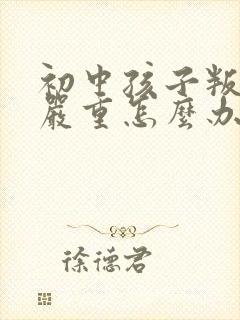 初中孩子叛
嚴重怎麼办
徐德君